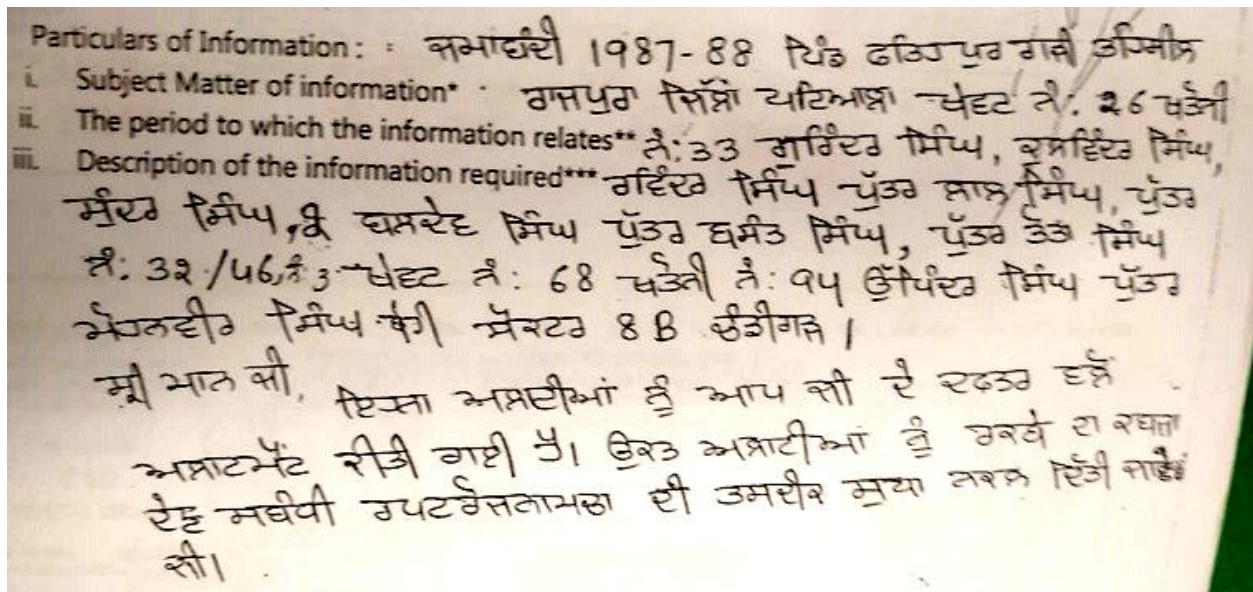 Particulars of Information : : ਜਮਾਂਬੰਦੀ 1987-88 ਪਿੰਡ ਫਤਿਹਪੁਰ ਗੜੀ ਤਹਿਸੀਲ
i. Subject Matter of information* ਰਾਜਪੁਰਾ ਜਿੱਲਾ ਪਟਿਆਲਾ ਖੇਵਟ ਨੰ: 26 ਖਤੋਨੀ
ii. The period to which the information relates** ਨੰ: 33 ਗੁਰਿੰਦਰ ਸਿੰਘ, ਕੁਲਵਿੰਦਰ ਸਿੰਘ,
iii. Description of the information required*** ਰਵਿੰਦਰ ਸਿੰਘ ਪੁੱਤਰ ਲਾਲ ਸਿੰਘ, ਪੁੱਤਰ
ਸੁੰਦਰ ਸਿੰਘ, ਬਲਦੇਵ ਸਿੰਘ ਪੁੱਤਰ ਬਸੰਤ ਸਿੰਘ, ਪੁੱਤਰ ਤੋਤਾ ਸਿੰਘ
ਨੰ: 32/46, ਖੇਵਟ ਨੰ: 68 ਖਤੋਨੀ ਨੰ: ੧੫ ਉਪਿੰਦਰ ਸਿੰਘ ਪੁੱਤਰ
ਮੋਹਨਵੀਰ ਸਿੰਘ ਸੈਕਟਰ 8 B ਚੰਡੀਗੜ।
ਸ੍ਰੀ ਮਾਨ ਜੀ, ਇਨਾ ਅਲਾਟੀਆਂ ਨੂੰ ਆਪ ਜੀ ਦੇ ਦਫਤਰ ਵਲੋਂ
ਅਲਾਟਮੈਂਟ ਕੀਤੀ ਗਈ ਹੈ। ਉਕਤ ਅਲਾਟੀਆਂ ਨੂੰ ਰਕਬੇ ਦਾ ਕਬਜਾ
ਦੇਣ ਸਬੰਧੀ ਰਪਟ ਰੋਜਨਾਮਚਾ ਦੀ ਤਸਦੀਕ ਸੁਧਾ ਨਕਲ ਦਿੱਤੀ ਜਾਵੇ
ਜੀ।